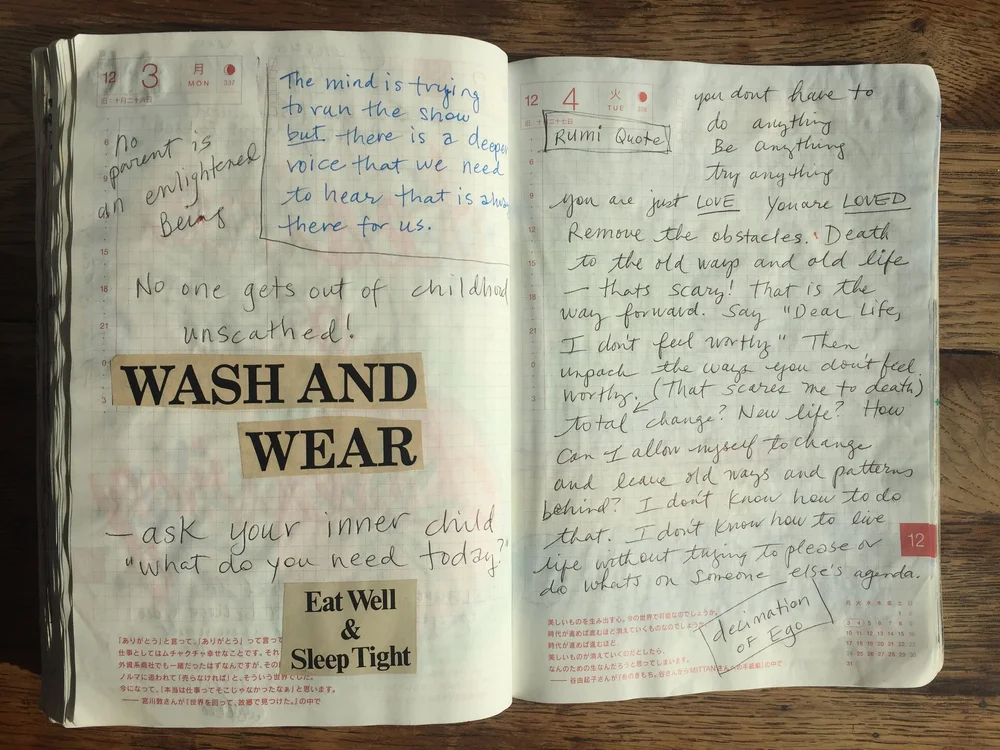 12 3 月 MON 337
No
parent is
an enlightened
Being
The mind is trying
to run the show
but there is a deeper
voice that we need
to hear that is
there for us.
No one gets out of childhood
unscathed!
WASH AND
WEAR
- ask your inner child
"what do you need today?"
Eat Well
&
Sleep Tight
「ありがとう」と言って、「ありがとう」って言って
仕事としてはムチャクチャ幸せなことです。それ
外資系商社でも一緒だったはずなんですが、その
ノルマに追われて「売らなければ」と、そういう世界でした。
今になって、「本当は仕事ってそこじゃなかったなぁ」と思います。
12 4 火 TUE 338
Rumi Quote
you dont have to
do anything
Be anything
try anything
you are just LOVE You are LOVED
Remove the obstacles. Death
to the old ways and old life
— thats scary! That is the
way forward. Say "Dear Life,
I don't feel worthy" Then
unpack the ways you don't feel
worthy. (That scares me to death)
total change? New life? How
can I allow myself to change
and leave old ways and patterns
behind? I don't know how to do
that. I don't know how to live
life without trying to please or
do whats on someone else's agenda.
decimation
OF Ego
12
美しいものを生み出す心。今の世界で可能なのでしょうか。
時代が進めば進むほど消えていくものなのでしょうか。
時代が進めば進むほど
美しいものが消えていくのとしたら、
なんのための生なんだろうと思ってしまいます。